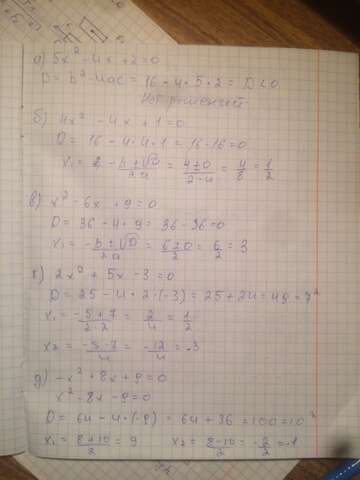 а) 5x² - 4x + 2 = 0
D = b² - 4ac = 16 - 4 · 5 · 2 = D < 0
Нет решений
б) 4x² - 4x + 1 = 0
D = 16 - 4 · 4 · 1 = 16 - 16 = 0
x₁ = 2 - b ± √D / 2a = 4 ± 0 / 2 · 4 = 4/8 = 1/2
в) x² - 6x + 9 = 0
D = 36 - 4 · 9 = 36 - 36 = 0
x₁ = -b ± √D / 2a = 6 ± 0 / 2 = 6/2 = 3
г) 2x² + 5x - 3 = 0
D = 25 - 4 · 2 · (-3) = 25 + 24 = 49 = 7²
x₁ = -5 + 7 / 2 · 2 = 2/4 = 1/2
x₂ = -5 - 7 / 4 = -12/4 = -3
д) -x² + 8x + 9 = 0
x² - 8x - 9 = 0
D = 64 - 4 · (-9) = 64 + 36 = 100 = 10²
x₁ = 8 + 10 / 2 = 9 x₂ = 8 - 10 / 2 = -2/2 = -1